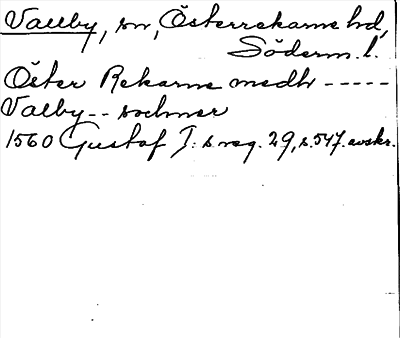 Vallby, sn, Österrekarne hd,
Söderm. l.
Öster Rekarne medh -----
Valby -- sochner
1560 Gustaf I: s reg. 29, s. 547. avskr.